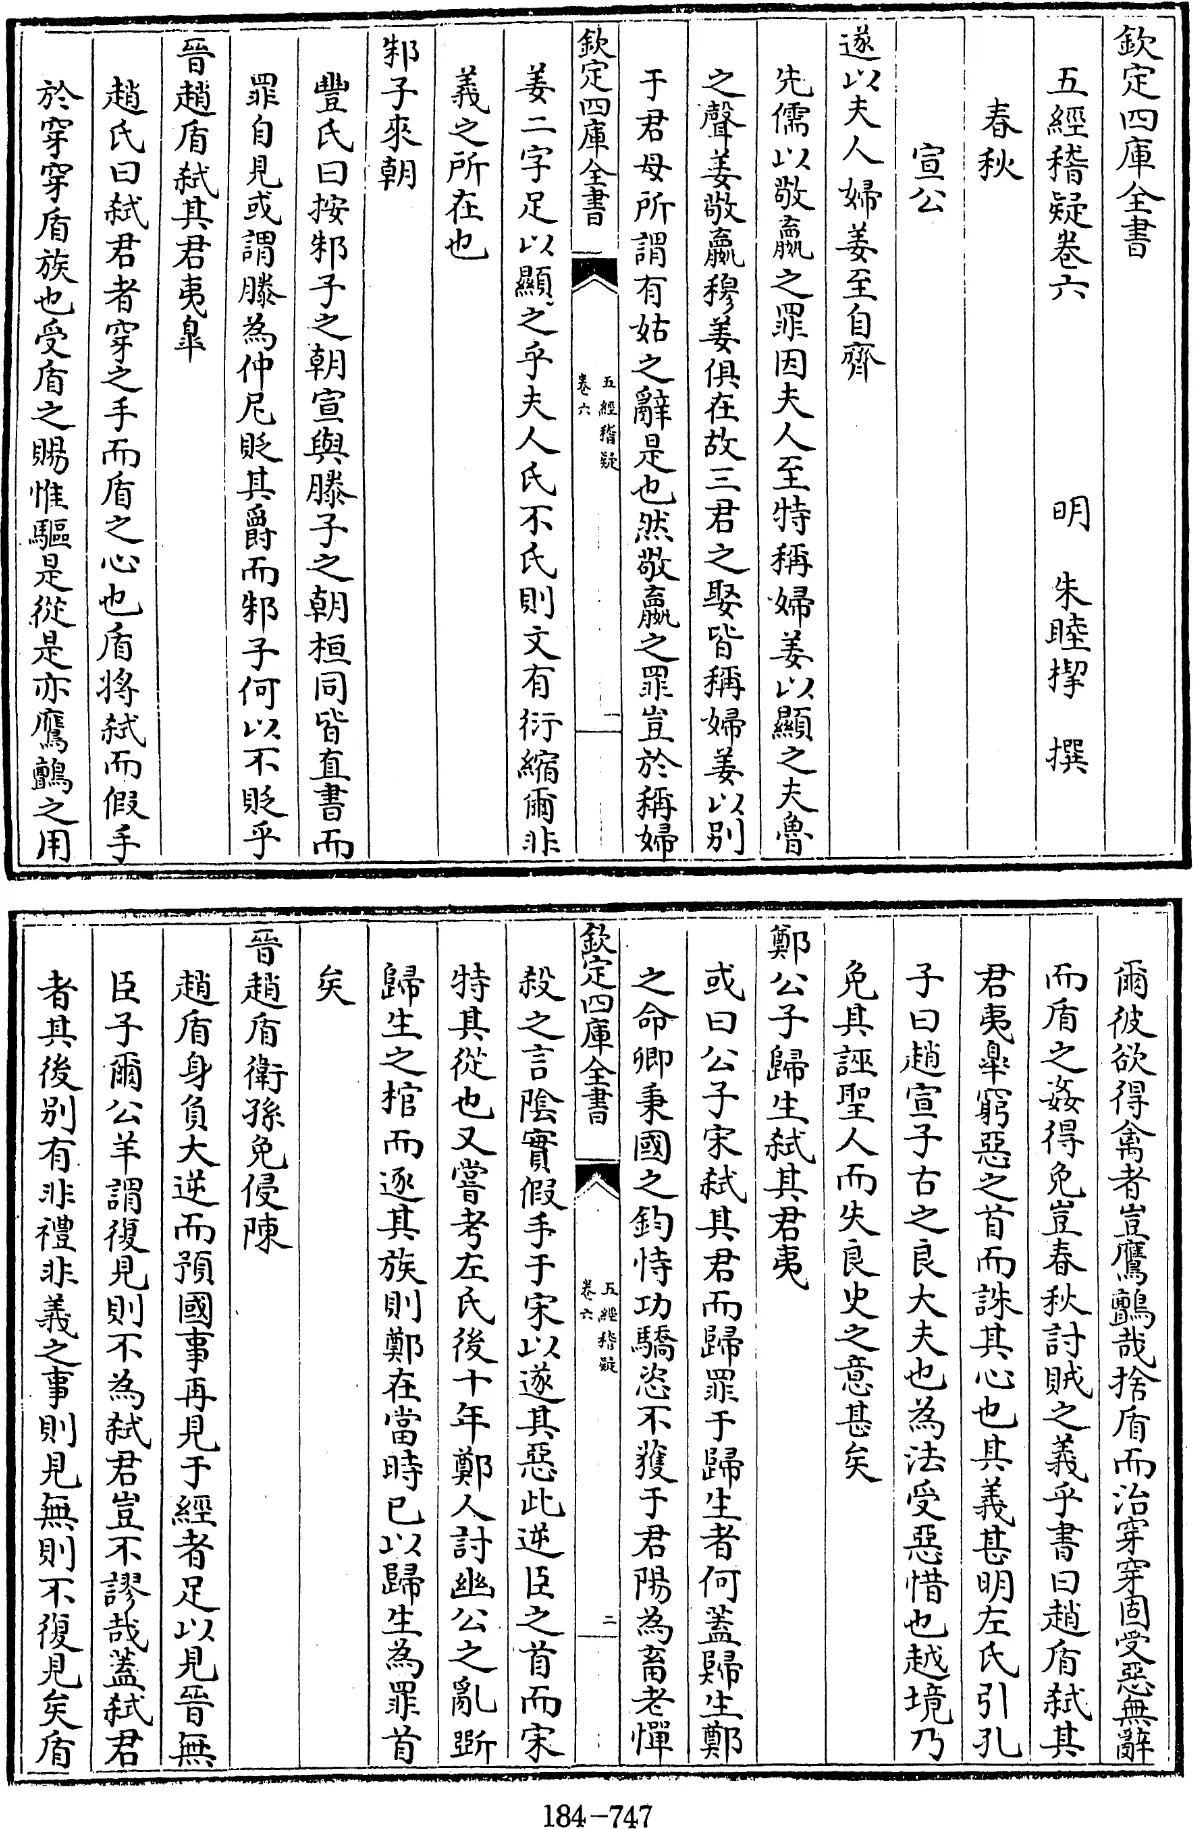 欽定四庫全書
五經稽疑卷六
明 朱睦㮮 撰
春秋
宣公
遂以夫人婦姜至自齊
先儒以敬嬴之罪因夫人至特稱婦姜以顯之夫魯
之聲姜敬嬴穆姜俱在故三君之娶皆稱婦姜以別
于君母所謂有姑之辭是也然敬嬴之罪豈於稱婦
欽定四庫全書
五經稽疑
卷六
一
姜二字足以顯之乎夫人氏不氏則文有衍縮爾非
義之所在也
邾子來朝
豐氏曰按邾子之朝宣與滕子之朝桓同皆直書而
罪自見或謂滕為仲尼貶其爵而邾子何以不貶乎
晉趙盾弑其君夷臯
趙氏曰弑君者穿之手而盾之心也盾將弑而假手
於穿穿盾族也受盾之賜惟驅是從是亦鷹鸇之用
爾彼欲得禽者豈鷹鸇哉捨盾而治穿穿固受惡無辭
而盾之姦得免豈春秋討賊之義乎書曰趙盾弑其
君夷臯窮惡之首而誅其心也其義甚明左氏引孔
子曰趙宣子古之良大夫也為法受惡惜也越境乃
免其誣聖人而失良史之意甚矣
鄭公子歸生弑其君夷
或曰公子宋弑其君而歸罪于歸生者何蓋歸生鄭
之命卿秉國之鈞恃功驕恣不獲于君陽為畜老憚
欽定四庫全書
五經稽疑
卷六
二
殺之言陰實假手于宋以遂其惡此逆臣之首而宋
特其從也又嘗考左氏後十年鄭人討幽公之亂斲
歸生之棺而逐其族則鄭在當時已以歸生為罪首
矣
晉趙盾衛孫免侵陳
趙盾身負大逆而預國事再見于經者足以見晉無
臣子爾公羊謂復見則不為弑君豈不謬哉蓋弑君
者其後別有非禮非義之事則見無則不復見矣盾
184-747